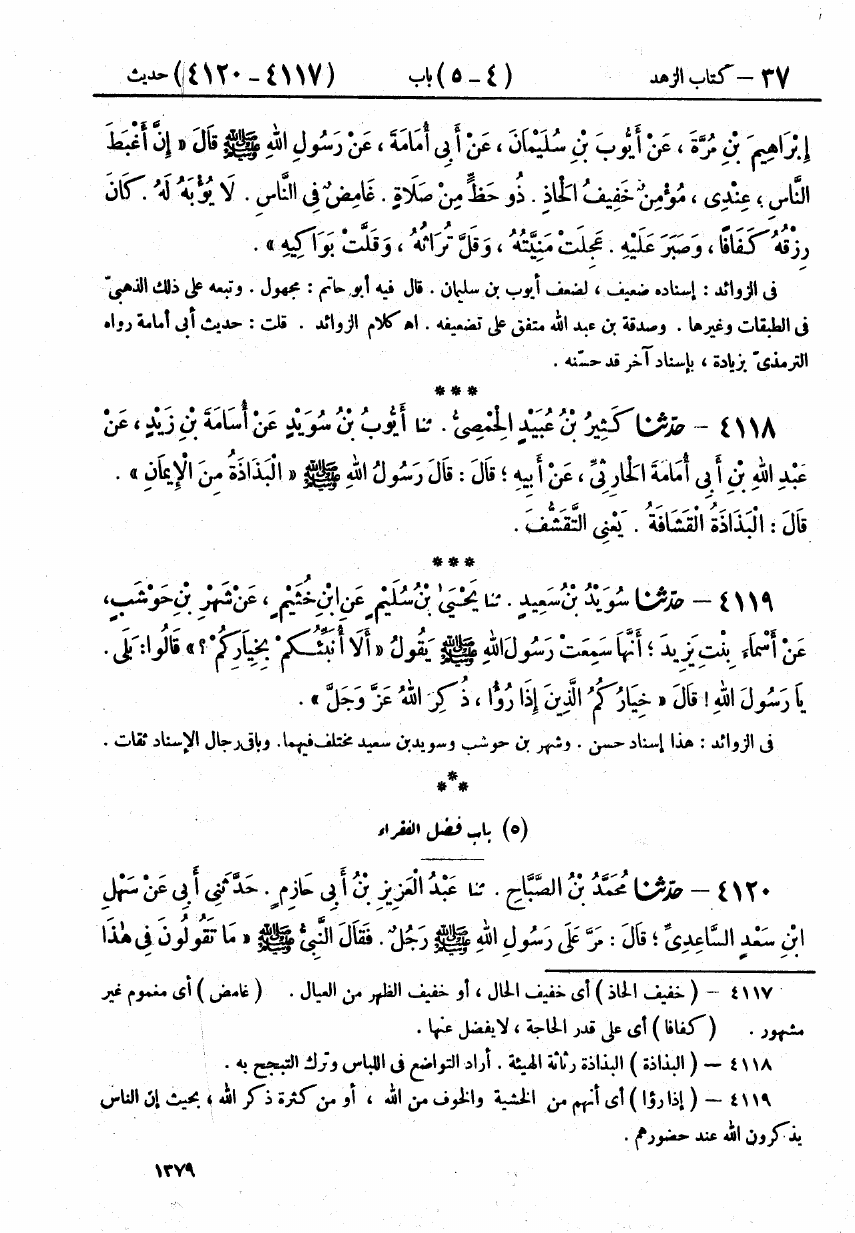 ٣٧ – كتاب الزهد (٤ – ٥) باب (٤١١٧ – ٤١٢٠) حديث
إِبْرَاهِيمَ بْنِ مُرَّةَ ، عَنْ أَيُّوبَ بْنِ سُلَيْمَانَ ، عَنْ أَبِي أُمَامَةَ ، عَنْ رَسُولِ اللهِ ﷺ قَالَ « إِنَّ أَغْبَطَ
النَّاسِ ، عِنْدِى ، مُؤْمِنٌ خَفِيفُ الْحَاذِ . ذُو حَظٍّ مِنْ صَلَاةٍ . غَامِضٌ فِى النَّاسِ . لَا يُؤْبَهُ لَهُ . كَانَ
رِزْقُهُ كَفَافًا ، وَصَبَرَ عَلَيْهِ . عَجِلَتْ مَنِيَّتُهُ ، وَقَلَّ تُرَاثُهُ ، وَقَلَّتْ بَوَاكِيهِ » .
فى الزوائد : إسناده ضعيف ، لضعف أيوب بن سليمان . قال فيه أبو حاتم : مجهول . وتبعه على ذلك الذهبىّ
فى الطبقات وغيرها . وصدقة بن عبد الله متفق على تضعيفه . اه كلام الزوائد . قلت : حديث أبى أمامة رواه
الترمذىّ بزيادة ، بإسناد آخر قد حسّنه .
***
٤١١٨ – حدّثنا كَثِيرُ بْنُ عُبَيْدٍ الْحِمْصِىُّ . ثنا أَيُّوبُ بْنُ سُوَيْدٍ عَنْ أُسَامَةَ بْنِ زَيْدٍ ، عَنْ
عَبْدِ اللهِ بْنِ أَبِى أُمَامَةَ الْحَارِثِىِّ ، عَنْ أَبِيهِ ؛ قَالَ : قَالَ رَسُولُ اللهِ ﷺ « الْبَذَاذَةُ مِنَ الْإِيمَانِ » .
قَالَ : الْبَذَاذَةُ الْقَشَافَةُ . يَعْنِى التَّقَشُّفَ .
***
٤١١٩ – حدّثنا سُوَيْدُ بْنُ سَعِيدٍ . ثنا يَحْيَىٰ بْنُ سُلَيْمٍ عَنِ ابْنِ خُثَيْمٍ ، عَنْ شَهْرِ بْنِ حَوْشَبٍ ،
عَنْ أَسْمَاءَ بِنْتِ يَزِيدَ ؛ أَنَّهَا سَمِعَتْ رَسُولَ اللهِ ﷺ يَقُولُ « أَلَا أُنَبِّئُكُمْ بِخِيَارِكُمْ ؟ » قَالُوا : بَلَى .
يَا رَسُولَ اللهِ ! قَالَ « خِيَارُكُمُ الَّذِينَ إِذَا رُؤُا ، ذُكِرَ اللهُ عَزَّ وَجَلَّ » .
فى الزوائد : هذا إسناد حسن . وشهر بن حوشب وسويد بن سعيد مختلف فيهما . وباقى رجال الإسناد ثقات .
***
(٥) باب فضل الفقراء
٤١٢٠ – حدّثنا مُحَمَّدُ بْنُ الصَّبَّاحِ . ثنا عَبْدُ الْعَزِيزِ بْنُ أَبِى حَازِمٍ . حَدَّثَنِى أَبِى عَنْ سَهْلِ
ابْنِ سَعْدٍ السَّاعِدِىِّ ؛ قَالَ : مَرَّ عَلَى رَسُولِ اللهِ ﷺ رَجُلٌ . فَقَالَ النَّبِىُّ ﷺ « مَا تَقُولُونَ فِى هٰذَا
٤١١٧ – ( خفيف الحاذ ) أى خفيف الحال ، أو خفيف الظهر من العيال . ( غامض ) أى مغموم غير
مشهور . ( كفافا ) أى على قدر الحاجة ، لا يفضل عنها .
٤١١٨ – ( البذاذة ) البذاذة رثاثة الهيئة . أراد التواضع فى اللباس وترك التبجح به .
٤١١٩ – ( إذا رؤا ) أى أنهم من الخشية والخوف من الله ، أو من كثرة ذكر الله ، بحيث إن الناس
يذكرون الله عند حضورهم .
١٣٧٩